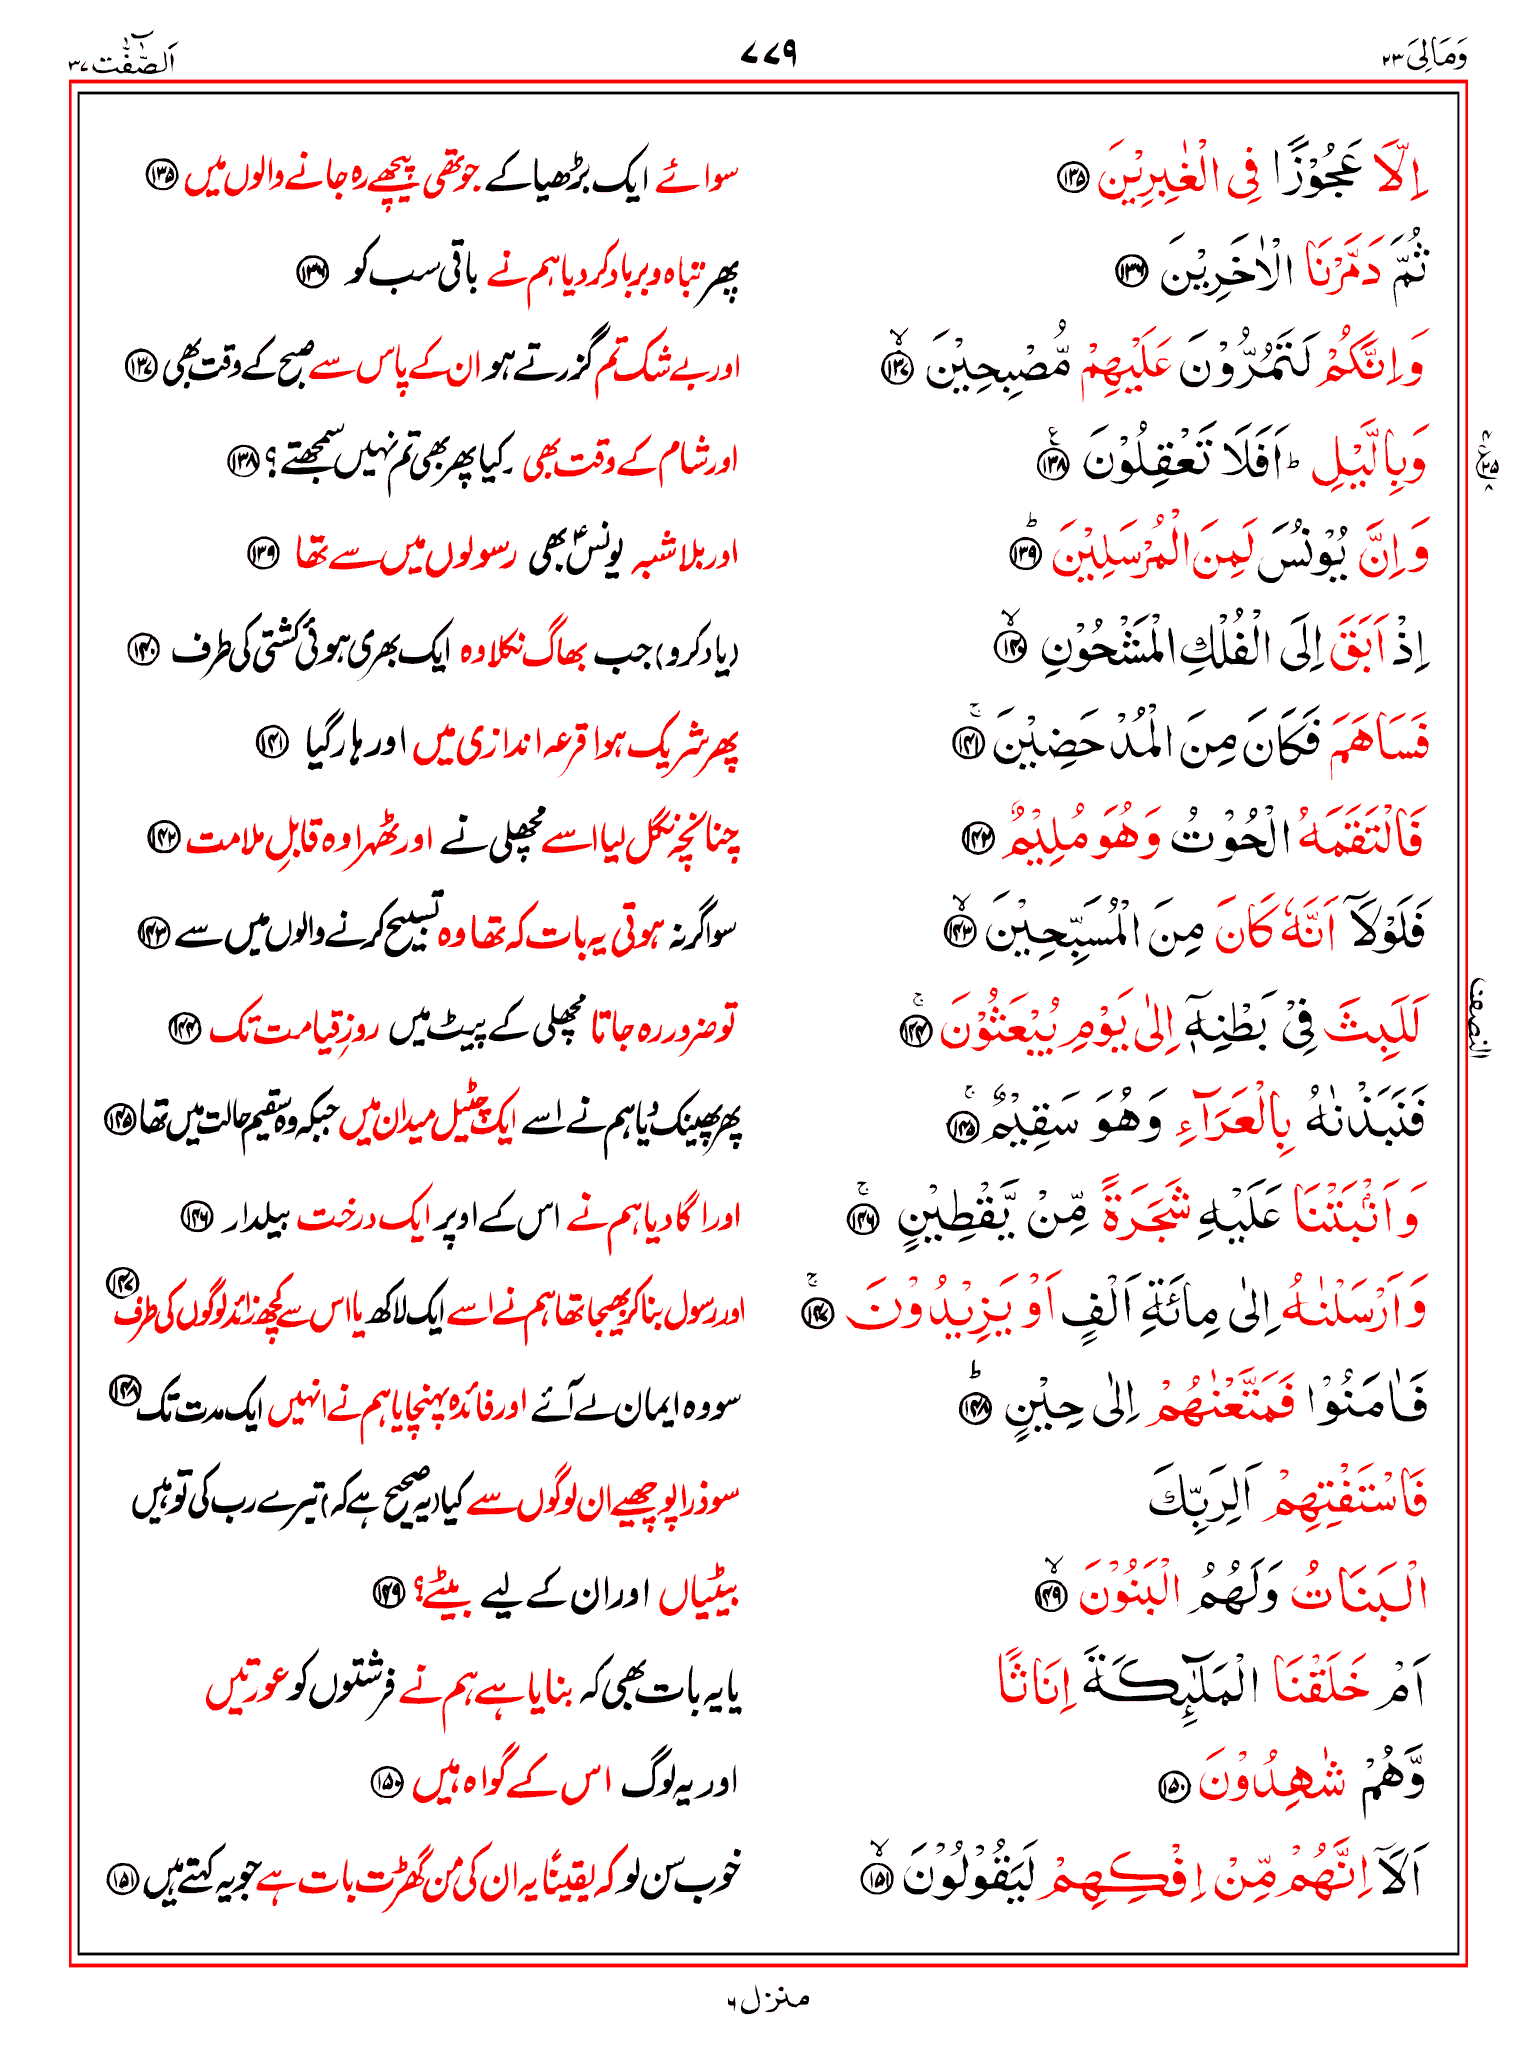 وَمَالِیَ ۲۳
۷۷۹
اَلصّٰٓفّٰت ۳۷
اِلَّا عَجُوْزًا فِی الْغٰبِرِیْنَ ۝۱۳۵ سوائے ایک بڑھیا کے جو تھی پیچھے رہ جانے والوں میں ۝۱۳۵
ثُمَّ دَمَّرْنَا الْاٰخَرِیْنَ ۝۱۳۶ پھر تباہ و برباد کر دیا ہم نے باقی سب کو ۝۱۳۶
وَاِنَّكُمْ لَتَمُرُّوْنَ عَلَیْهِمْ مُّصْبِحِیْنَ ۝۱۳۷ۙ اور بے شک تم گزرتے ہو ان کے پاس سے صبح کے وقت بھی ۝۱۳۷
وَبِالَّیْلِ ؕ اَفَلَا تَعْقِلُوْنَ ۝۱۳۸ اور شام کے وقت بھی ۔ کیا پھر بھی تم نہیں سمجھتے؟ ۝۱۳۸
وَاِنَّ یُوْنُسَ لَمِنَ الْمُرْسَلِیْنَ ۝۱۳۹ؕ اور بلاشبہ یونسؑ بھی رسولوں میں سے تھا ۝۱۳۹
اِذْ اَبَقَ اِلَی الْفُلْكِ الْمَشْحُوْنِ ۝۱۴۰ۙ (یاد کرو) جب بھاگ نکلا وہ ایک بھری ہوئی کشتی کی طرف ۝۱۴۰
فَسَاهَمَ فَكَانَ مِنَ الْمُدْحَضِیْنَ ۝۱۴۱ۚ پھر شریک ہوا قرعہ اندازی میں اور ہار گیا ۝۱۴۱
فَالْتَقَمَهُ الْحُوْتُ وَهُوَ مُلِیْمٌ ۝۱۴۲ چنانچہ نگل لیا اسے مچھلی نے اور ٹھہرا وہ قابلِ ملامت ۝۱۴۲
فَلَوْلَاۤ اَنَّهٗ كَانَ مِنَ الْمُسَبِّحِیْنَ ۝۱۴۳ۙ سو اگر نہ ہوتی یہ بات کہ تھا وہ تسبیح کرنے والوں میں سے ۝۱۴۳
لَلَبِثَ فِیْ بَطْنِهٖۤ اِلٰی یَوْمِ یُبْعَثُوْنَ ۝۱۴۴ۚ تو ضرور رہ جاتا مچھلی کے پیٹ میں روزِ قیامت تک ۝۱۴۴
فَنَبَذْنٰهُ بِالْعَرَآءِ وَهُوَ سَقِیْمٌ ۝۱۴۵ۚ پھر پھینک دیا ہم نے اسے ایک چٹیل میدان میں جبکہ وہ سقیم حالت میں تھا ۝۱۴۵
وَاَنْۢبَتْنَا عَلَیْهِ شَجَرَةً مِّنْ یَّقْطِیْنٍ ۝۱۴۶ۚ اور اگا دیا ہم نے اس کے اوپر ایک درخت بیلدار ۝۱۴۶
وَاَرْسَلْنٰهُ اِلٰی مِائَةِ اَلْفٍ اَوْ یَزِیْدُوْنَ ۝۱۴۷ۚ اور رسول بنا کر بھیجا تھا ہم نے اسے ایک لاکھ یا اس سے کچھ زائد لوگوں کی طرف ۝۱۴۷
فَاٰمَنُوْا فَمَتَّعْنٰهُمْ اِلٰی حِیْنٍ ۝۱۴۸ؕ سو وہ ایمان لے آئے اور فائدہ پہنچایا ہم نے انہیں ایک مدت تک ۝۱۴۸
فَاسْتَفْتِهِمْ اَلِرَبِّكَ سو ذرا پوچھیے ان لوگوں سے کیا (یہ صحیح ہے کہ) تیرے رب کی تو ہیں
الْبَنَاتُ وَلَهُمُ الْبَنُوْنَ ۝۱۴۹ۙ بیٹیاں اور ان کے لیے بیٹے؟ ۝۱۴۹
اَمْ خَلَقْنَا الْمَلٰٓئِكَةَ اِنَاثًا یا یہ بات بھی کہ بنایا ہے ہم نے فرشتوں کو عورتیں
وَّهُمْ شٰهِدُوْنَ ۝۱۵۰ اور یہ لوگ اس کے گواہ ہیں ۝۱۵۰
اَلَاۤ اِنَّهُمْ مِّنْ اِفْكِهِمْ لَیَقُوْلُوْنَ ۝۱۵۱ۙ خوب سن لو کہ یقینًا یہ ان کی من گھڑت بات ہے جو یہ کہتے ہیں ۝۱۵۱
النصف
منزل ۶